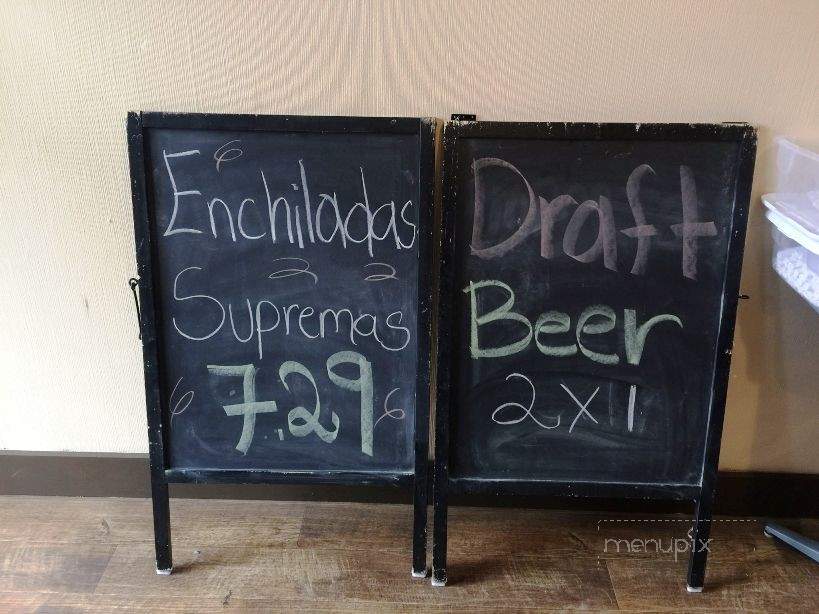 Enchiladas
Supremas
7.29
Draft
Beer
2x1
menupix